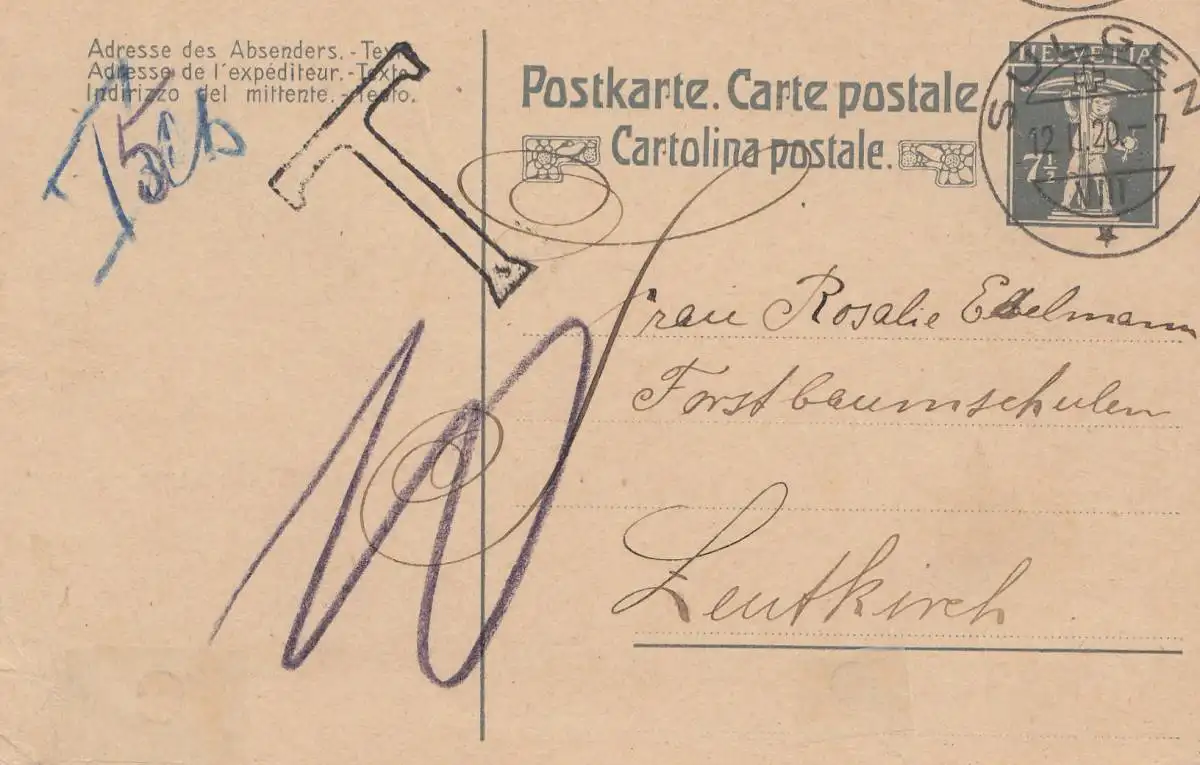 Adresse des Absenders.-Texte
Adresse de l'expéditeur.-Texte
Indirizzo del mittente.-Testo.
Postkarte. Carte postale
Cartolina postale.
HELVETIA
7½
SULGEN
12. 20.-7
VIII
T
T 5
10
Frau Rosalie Edelmann
Forstbaumschulen
Leutkirch